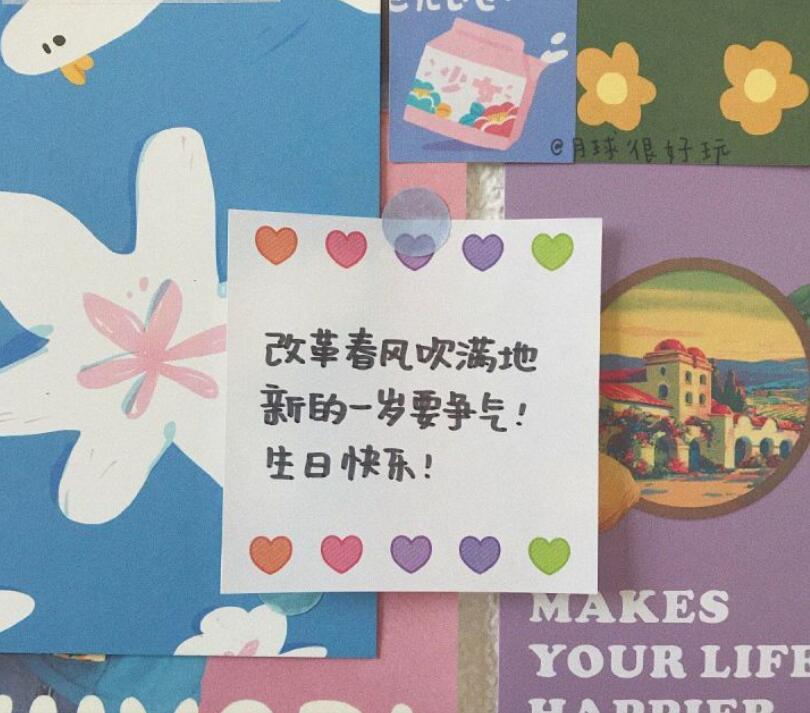 少女
@月球很好玩
改革春风吹满地
新的一岁要争气！
生日快乐！
MAKES
YOUR LIFE
HAPPIER